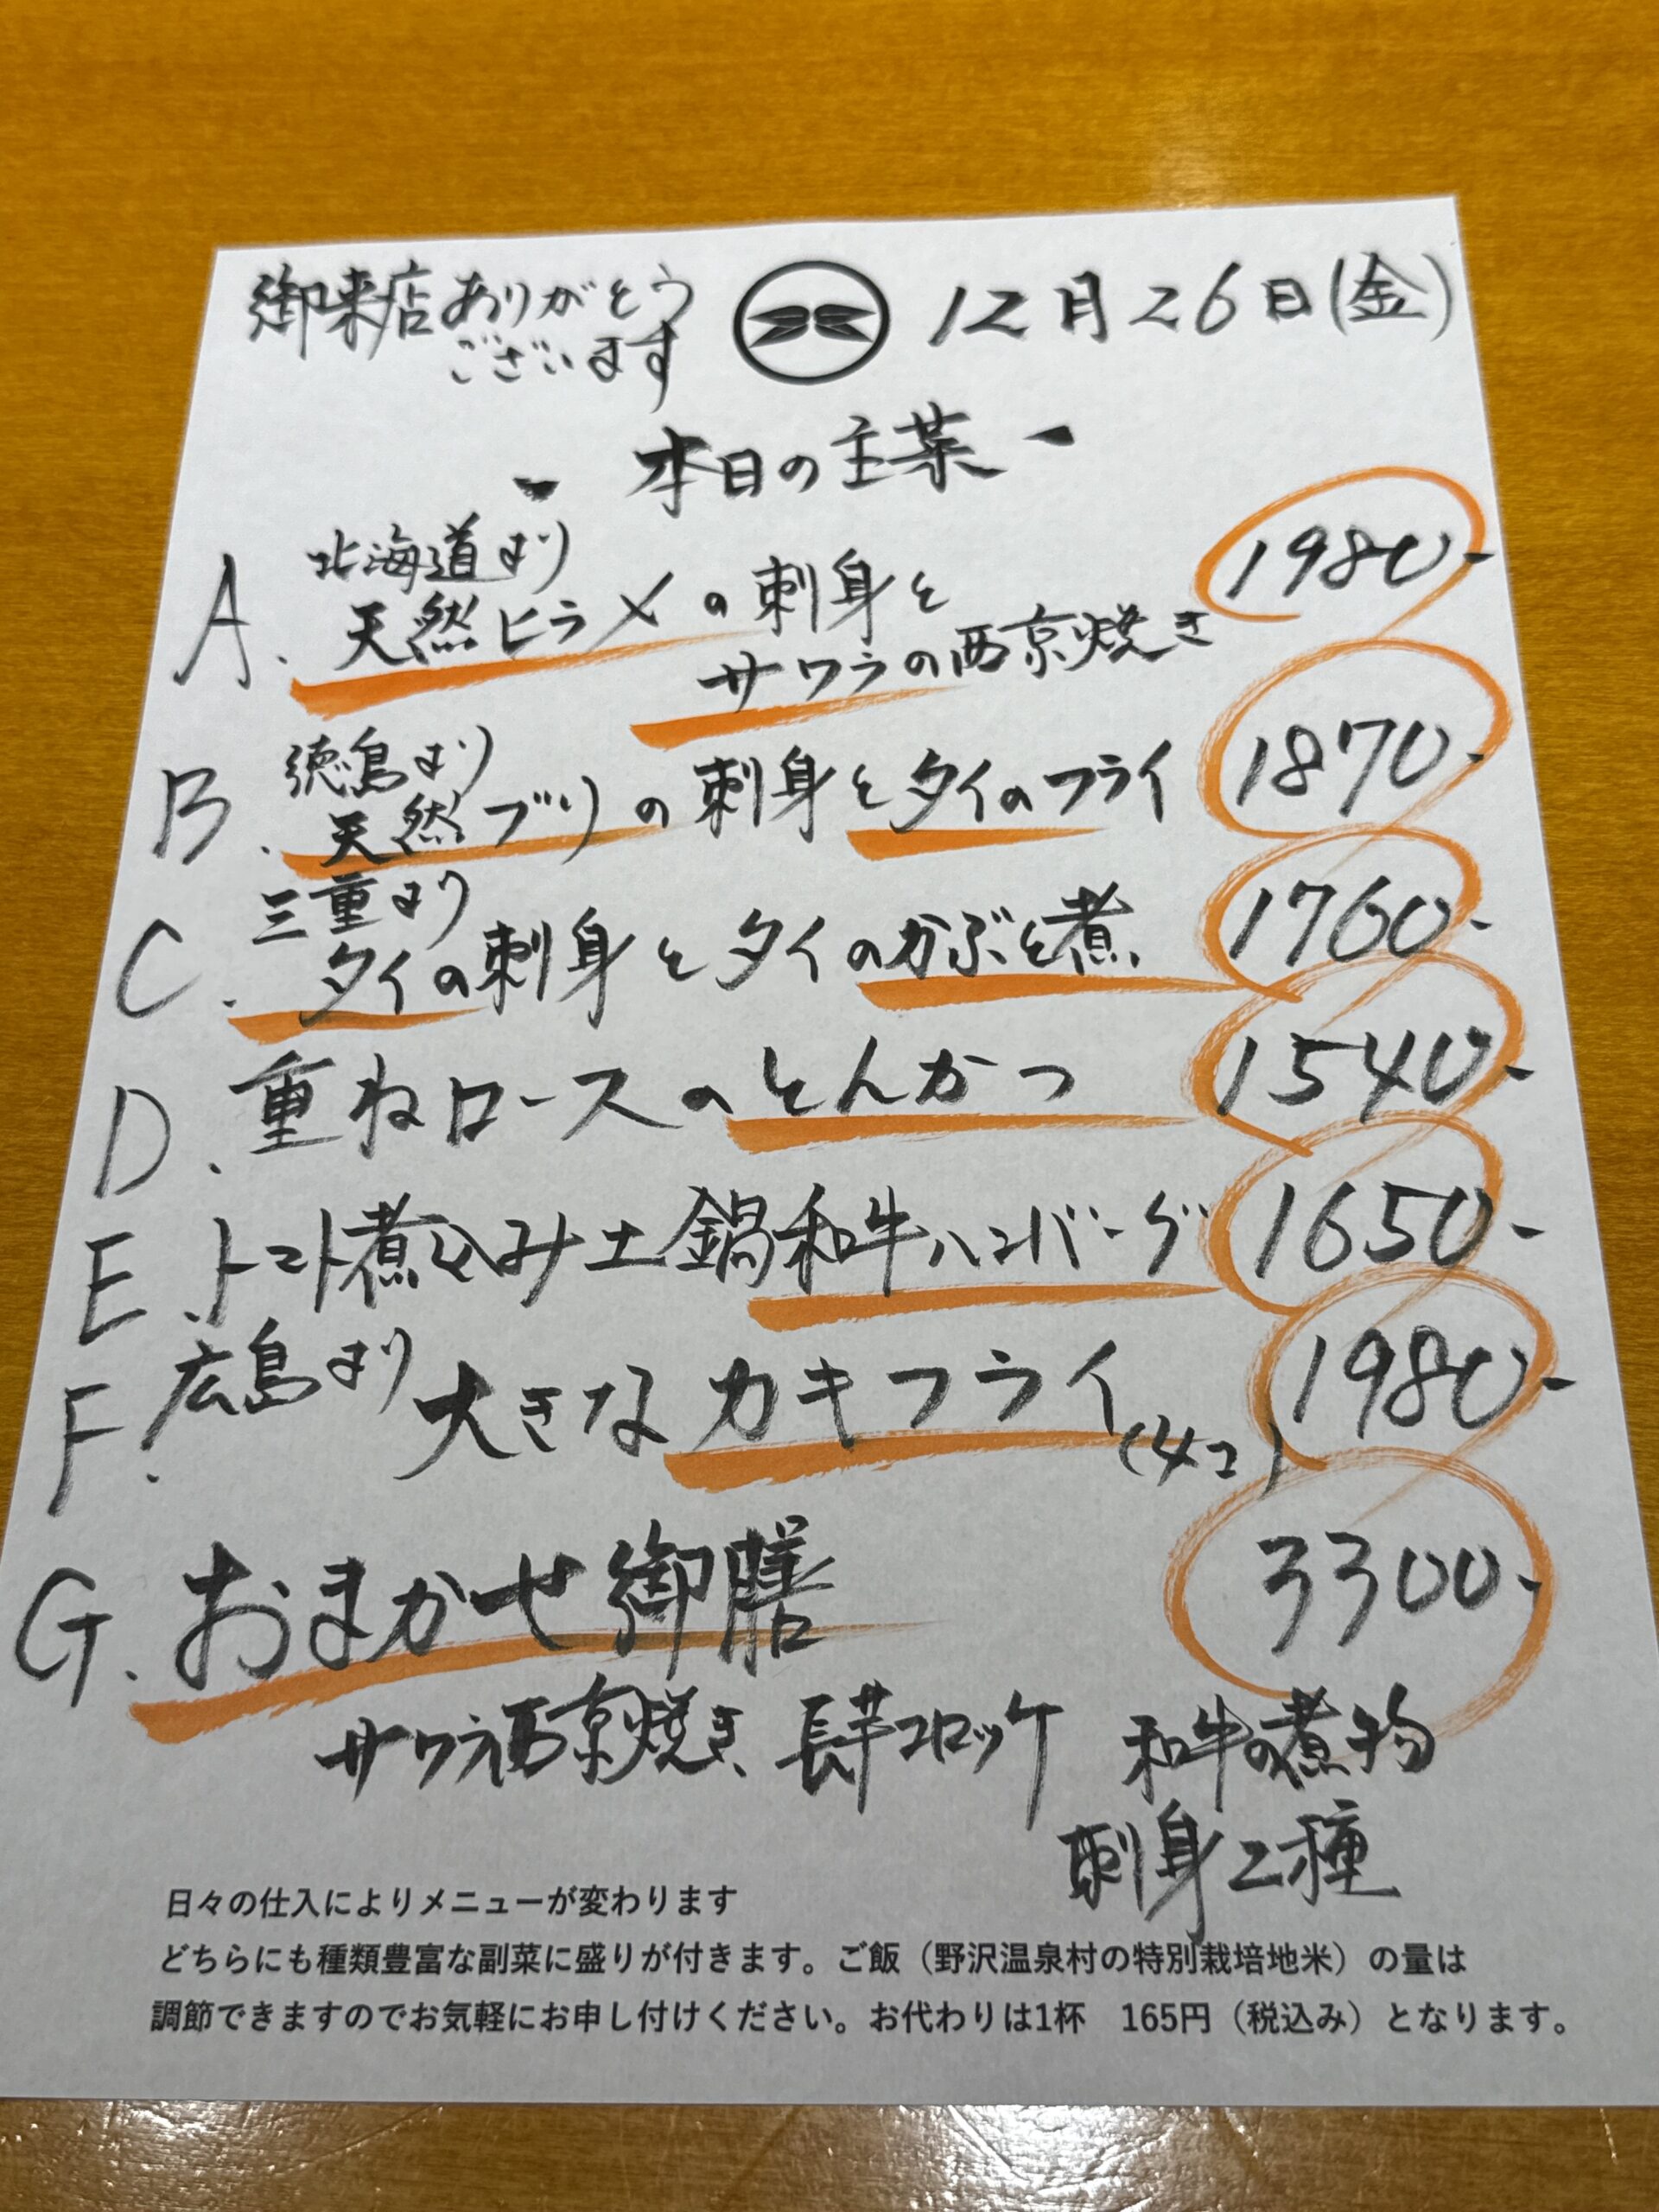 御来店ありがとう
ございます
12月26日(金)
本日の主菜
A. 北海道より
天然ヒラメの刺身と
サワラの西京焼き
1980-
B. 徳島より
天然ブリの刺身とタイのフライ 1870-
C. 三重より
タイの刺身とタイのかぶと煮 1760-
D. 重ねロースのとんかつ 1540-
E. トマト煮込み土鍋和牛ハンバーグ 1650-
F. 広島より 大きなカキフライ(4コ) 1980-
G. おまかせ御膳 3300-
サワラ西京焼き、長芋コロッケ 和牛の煮物
刺身2種
日々の仕入によりメニューが変わります
どちらにも種類豊富な副菜に盛りが付きます。ご飯（野沢温泉村の特別栽培地米）の量は
調節できますのでお気軽にお申し付けください。お代わりは1杯　165円（税込み）となります。